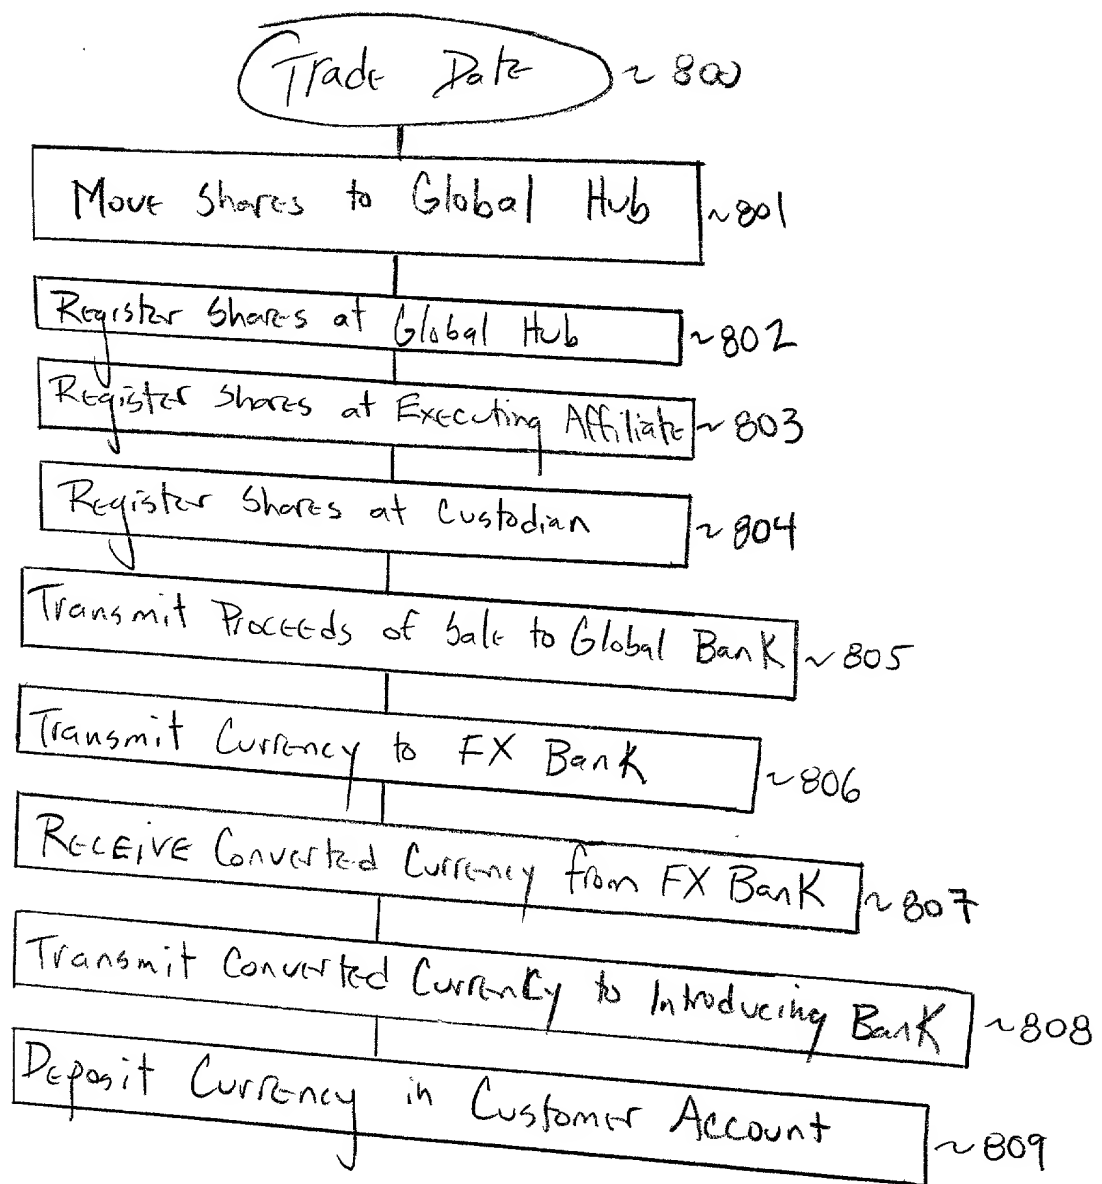 Trade Date ~ 800
Move Shares to Global Hub ~801
Register Shares at Global Hub ~802
Register Shares at Executing Affiliate ~ 803
Register Shares at Custodian ~ 804
Transmit Proceeds of Sale to Global Bank ~ 805
Transmit Currency to FX Bank ~806
Receive Converted Currency from FX Bank ~807
Transmit Converted Currency to Introducing Bank ~808
Deposit Currency in Customer Account ~809